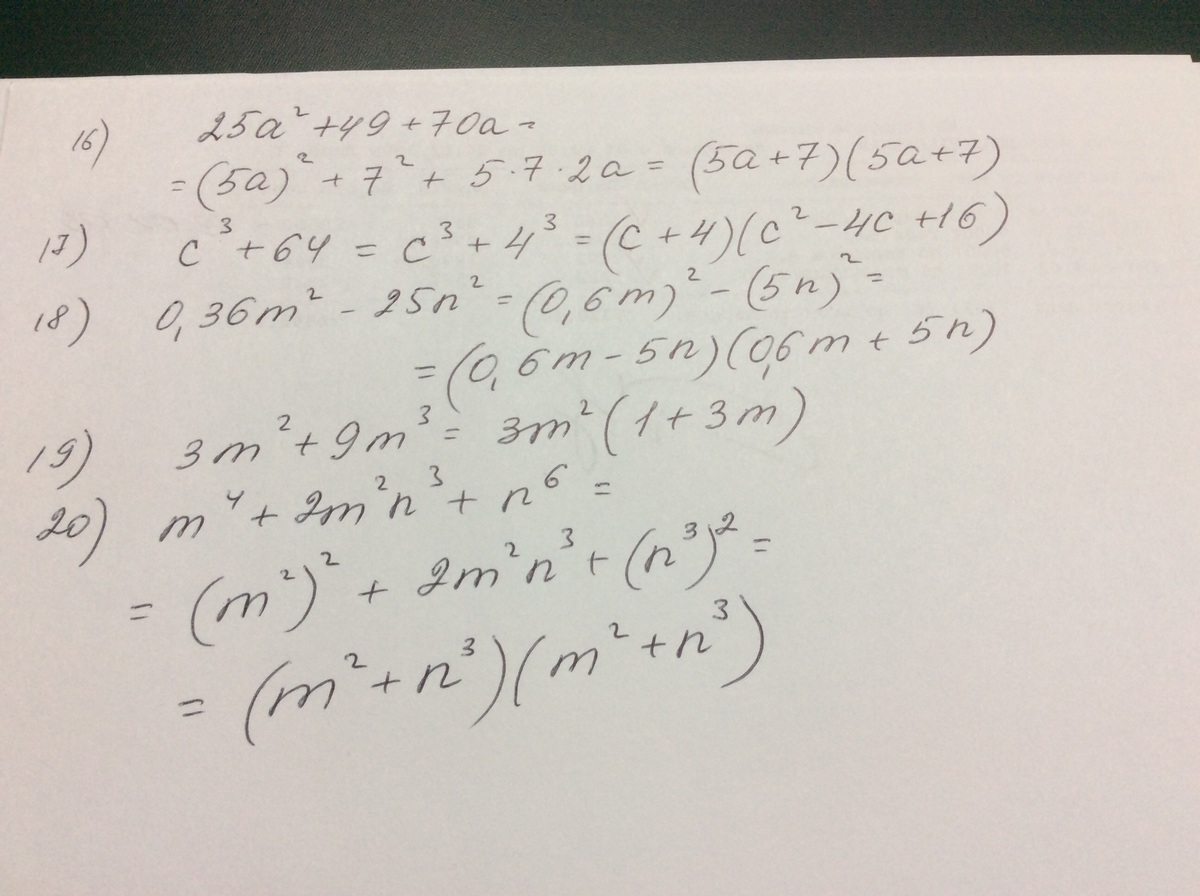 16) 25a² + 49 + 70a =
= (5a)² + 7² + 5·7·2a = (5a+7)(5a+7)
17) c³ + 64 = c³ + 4³ = (c + 4)(c² - 4c + 16)
18) 0,36m² - 25n² = (0,6m)² - (5n)² =
= (0,6m - 5n)(0,6m + 5n)
19) 3m² + 9m³ = 3m²(1 + 3m)
20) m⁴ + 2m²n³ + n⁶ =
= (m²)² + 2m²n³ + (n³)² =
= (m² + n³)(m² + n³)